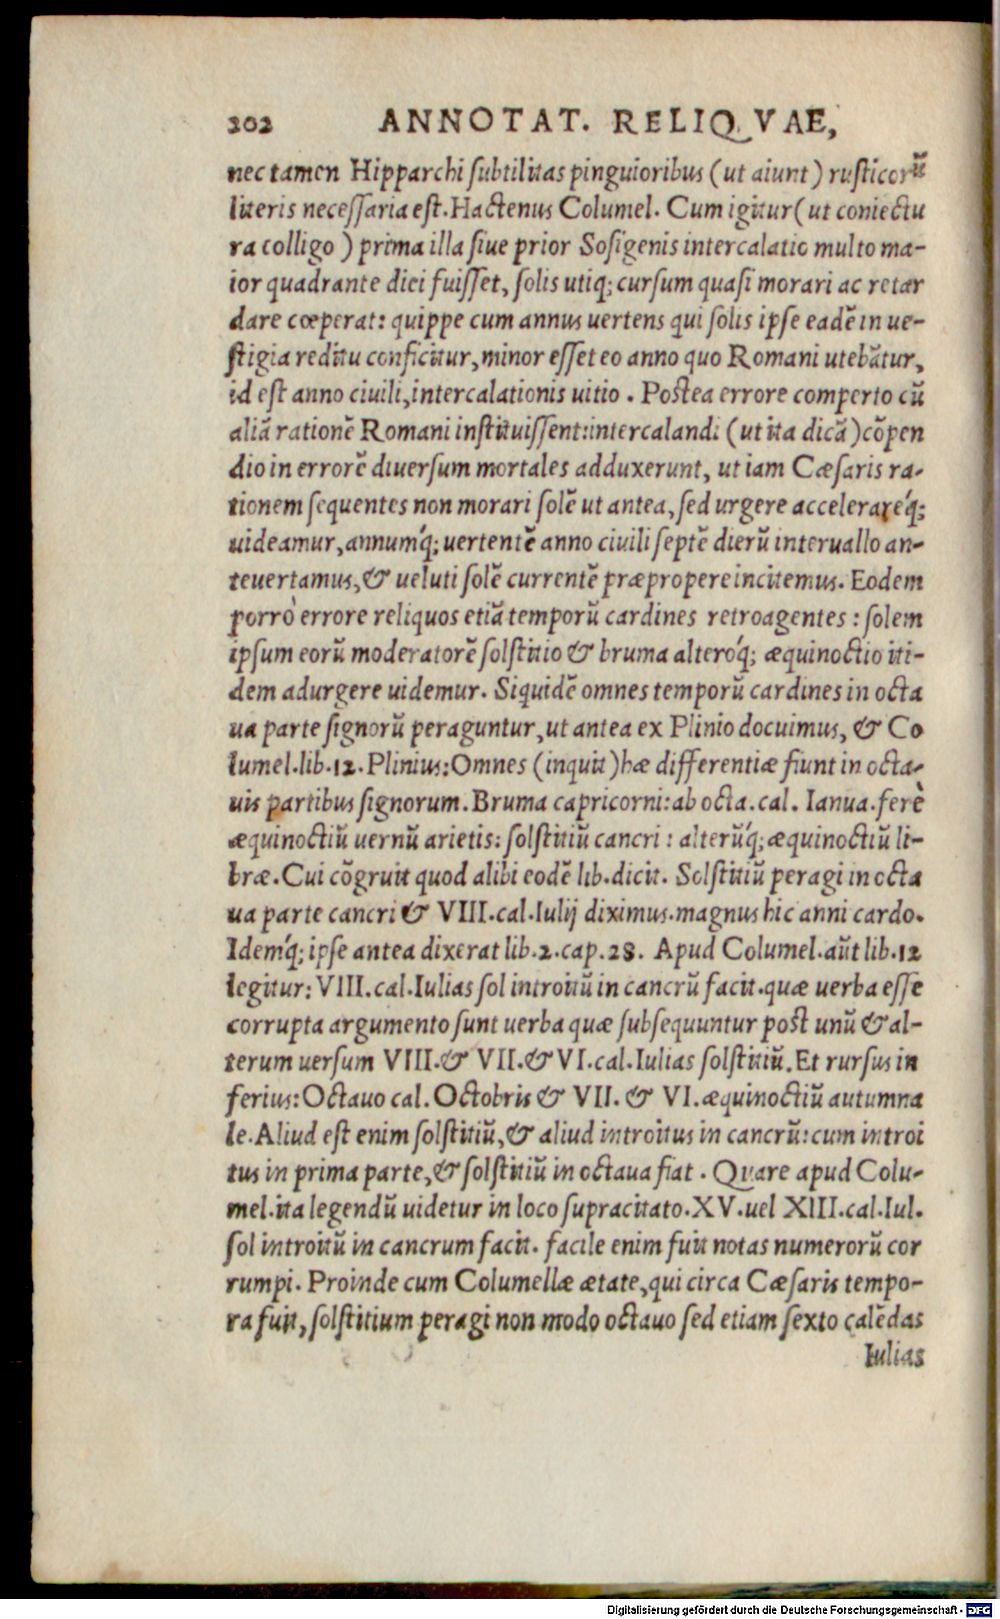 202 ANNOTAT. RELIQVAE,
nec tamen Hipparchi subtilitas pinguioribus (ut aiunt) rusticorū
literis necessaria est. Hactenus Columel. Cum igitur (ut coniectu
ra colligo) prima illa siue prior Sosigenis intercalatio multo ma-
ior quadrante diei fuisset, solis utiq; cursum quasi morari ac retar
dare cœperat: quippe cum annus uertens qui solis ipse eadē in ue-
stigia reditu conficitur, minor esset eo anno quo Romani utebātur,
id est anno ciuili, intercalationis uitio. Postea errore comperto cū
aliā rationē Romani instituissent: intercalandi (ut ita dicā) cōpen
dio in errorē diuersum mortales adduxerunt, ut iam Cæsaris ra-
tionem sequentes non morari solē ut antea, sed urgere accelerareq́;
uideamur, annumq́; uertentē anno ciuili septē dierū interuallo an-
teuertamus, & ueluti solē currentē præpropere incitemus. Eodem
porrò errore reliquos etiā temporū cardines retroagentes: solem
ipsum eorū moderatorē solstitio & bruma alteroq́; æquinoctio iti-
dem adurgere uidemur. Siquidē omnes temporū cardines in octa
ua parte signorū peraguntur, ut antea ex Plinio docuimus, & Co
lumel. lib. 12. Plinius: Omnes (inquit) hæ differentiæ fiunt in octa-
uis partibus signorum. Bruma capricorni: ab octa. cal. Ianua. ferè
æquinoctiū uernū arietis: solstitiū cancri: alterūq́; æquinoctiū li-
bræ. Cui cōgruit quod alibi eodē lib. dicit. Solstitiū peragi in octa
ua parte cancri & VIII. cal. Iulij diximus. magnus hic anni cardo.
Idemq́; ipse antea dixerat lib. 2. cap. 28. Apud Columel. aūt lib. 12
legitur: VIII. cal. Iulias sol introitū in cancrū facit. quæ uerba esse
corrupta argumento sunt uerba quæ subsequuntur post unū & al-
terum uersum VIII. & VII. & VI. cal. Iulias solstitiū. Et rursus in
ferius: Octauo cal. Octobris & VII. & VI. æquinoctiū autumna
le. Aliud est enim solstitiū, & aliud introitus in cancrū: cum introi
tus in prima parte, & solstitiū in octaua fiat. Quare apud Colu-
mel. ita legendū uidetur in loco supracitato. XV. uel XIII. cal. Iul.
sol introitū in cancrum facit. facile enim fuit notas numerorū cor
rumpi. Proinde cum Columellæ ætate, qui circa Cæsaris tempo-
ra fuit, solstitium peragi non modo octauo sed etiam sexto calēdas
Iulias
Digitalisierung gefördert durch die Deutsche Forschungsgemeinschaft - DFG